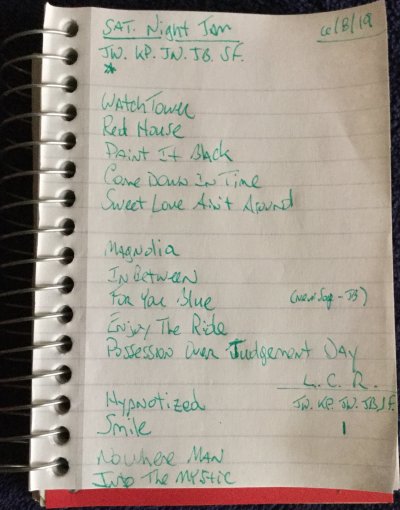 SAT. Night Jam 6/8/19
JW. KP. JN. JB. SF.
*
Watch Tower
Red House
Paint It Black
Come Down In Time
Sweet Love Ain't Around
Magnolia
In Between
For You Blue (new song - JB)
Enjoy The Ride
Possession Over Judgement Day
L. C. R.
Hypnotized JW. KP. JW. JB. SF.
Smile 1
Nowhere Man
Into The Mystic